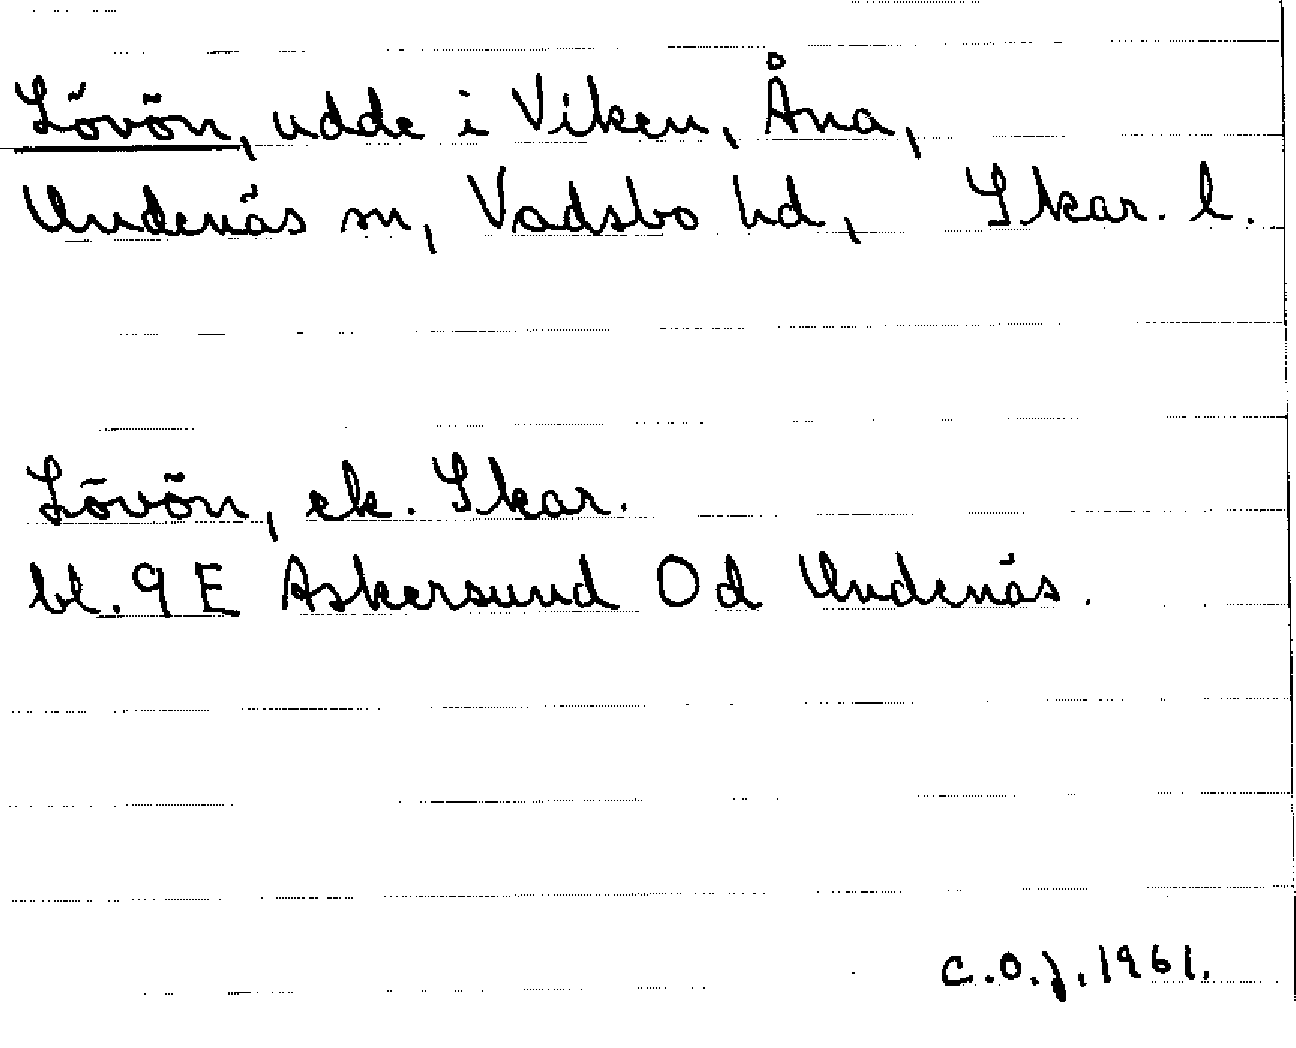 Lövön, udde i Viken, Åna,
Undenäs sn, Vadsbo hd, Skar. l.
Lövön, ek. Skar.
bl. 9 E Askersund 0 d Undenäs.
C.O.J. 1961.